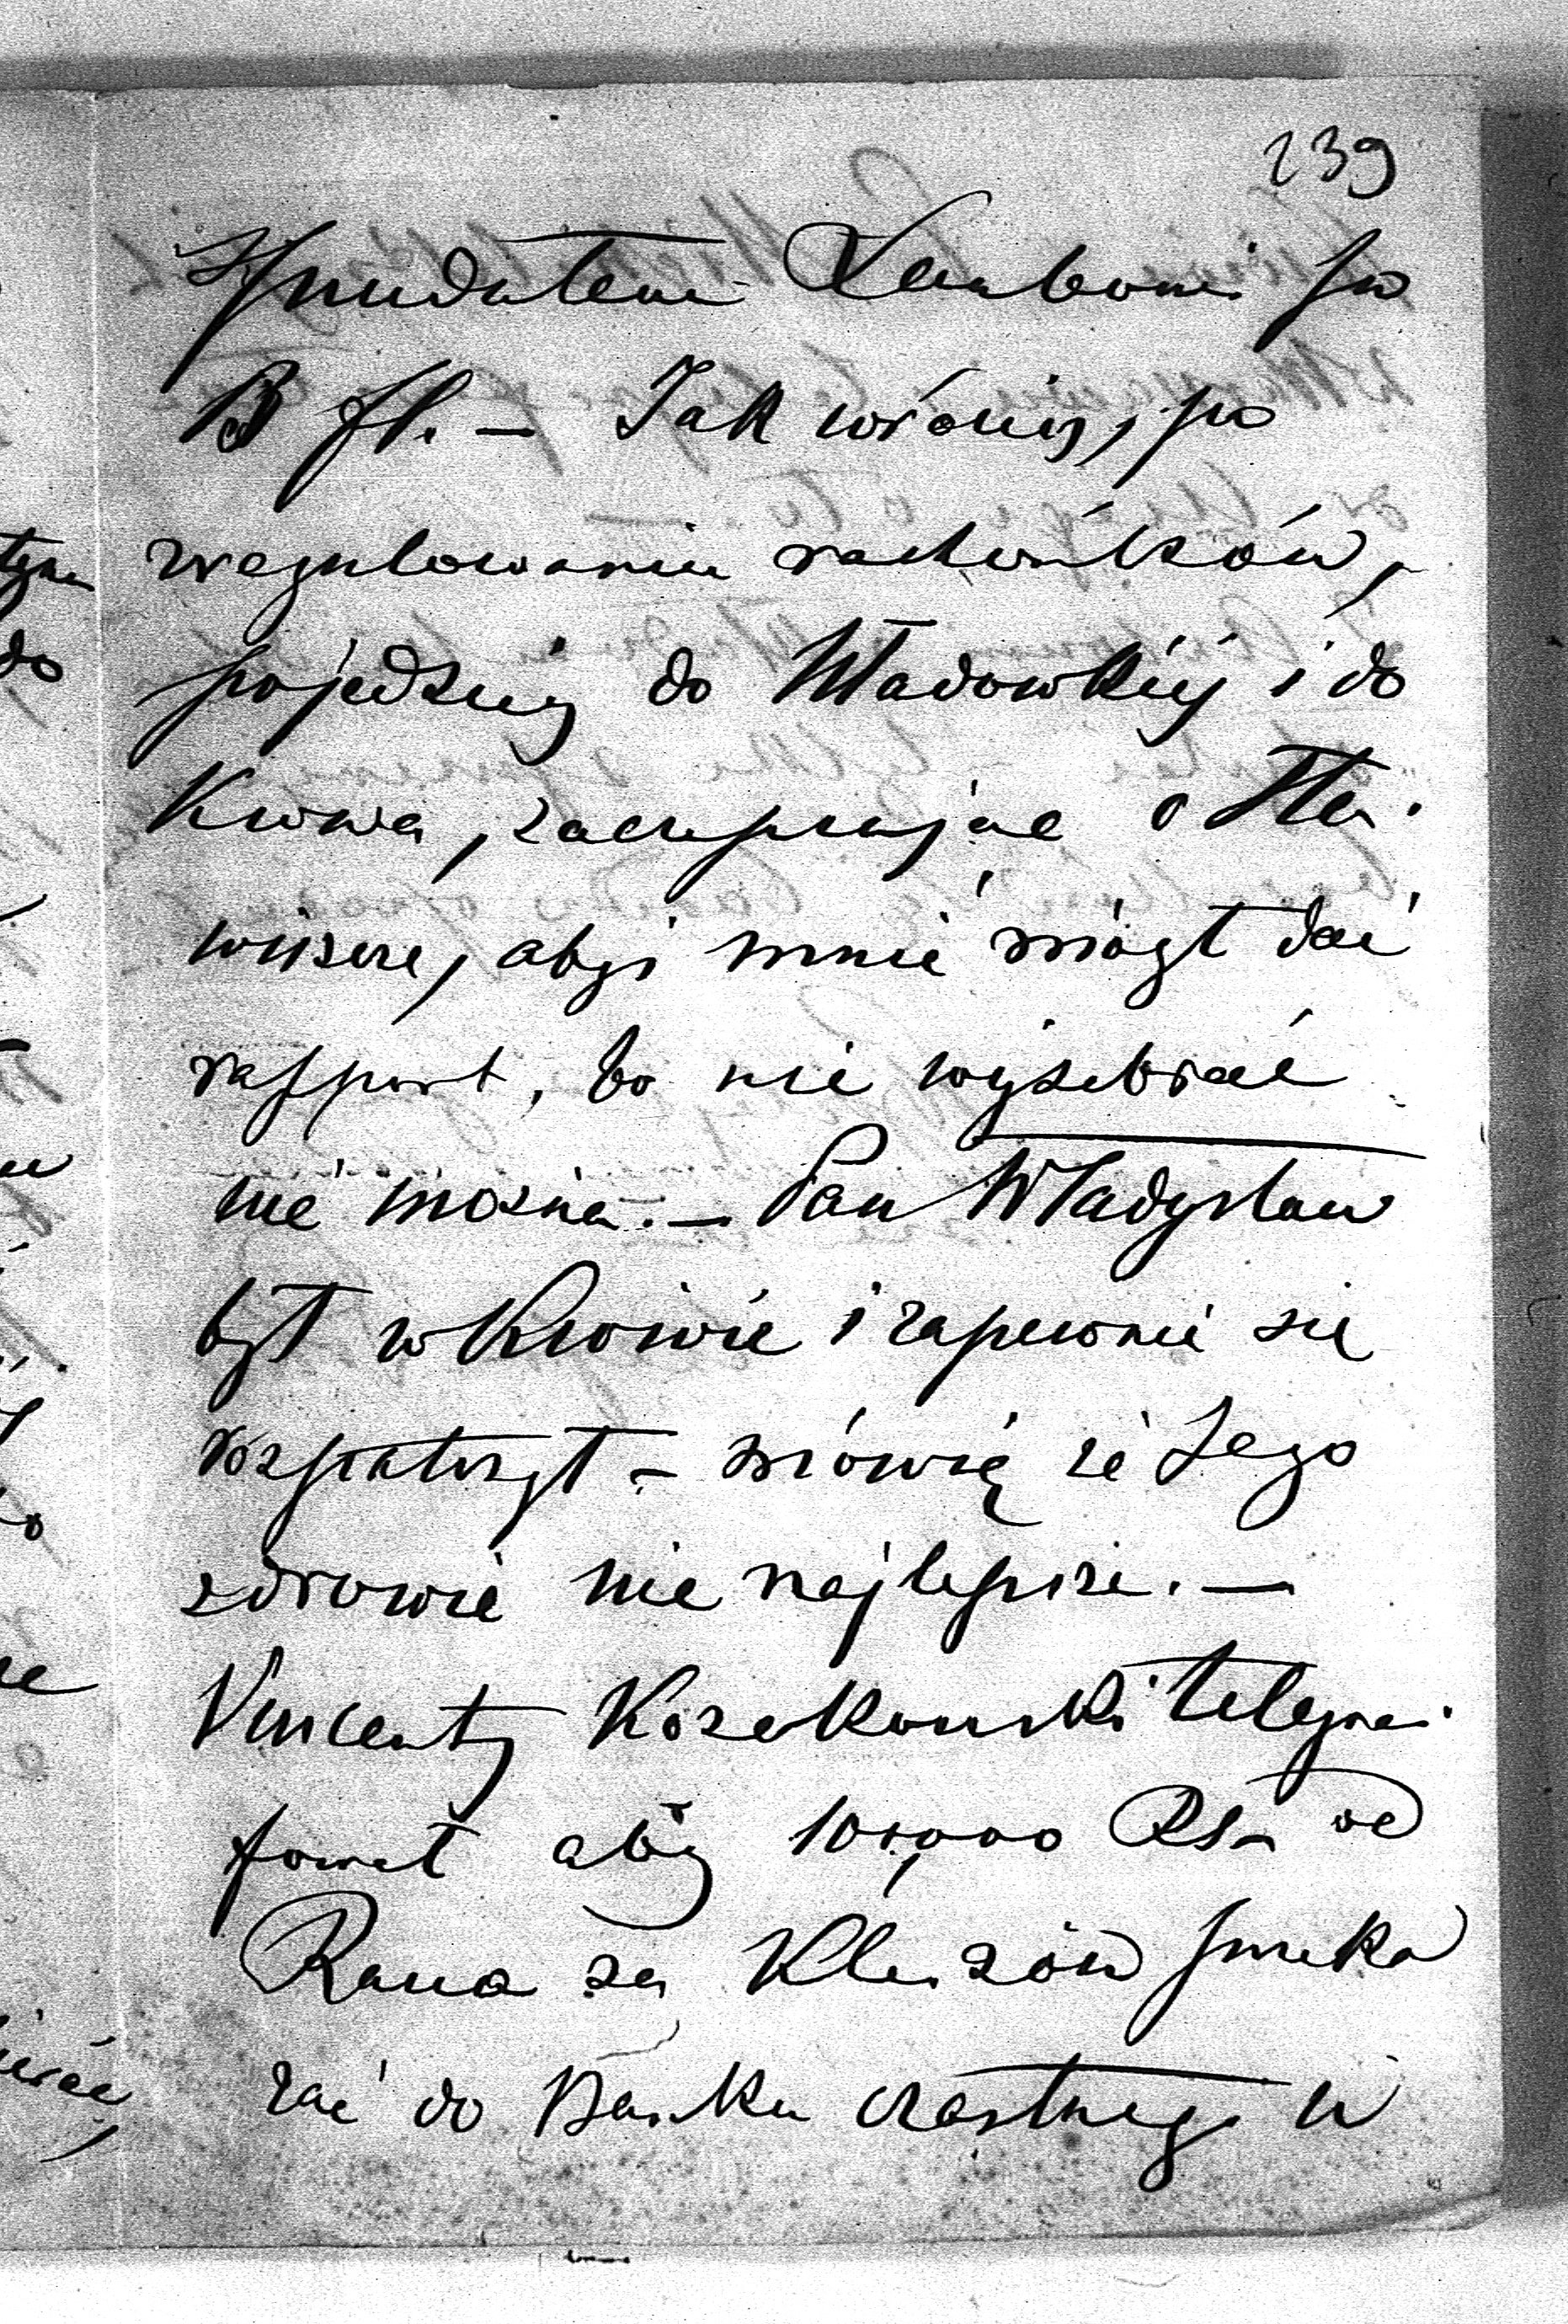 239
Sprzedałem Lembomi po
13 fl. — Jak wrócisz, po
uregulowaniu rachunków,
pojedziesz do Wadowkiéj i do
Krowa, zaczepiając o Sta-
wiszcze, abyś mnie mógł dać
rapport, bo nic wyżebrać
nie można. — Pan Władysław
był w Krowie i zapewne się
rozpatrzył — mówią że Jego
zdrowie nie najlepsze. —
Vincenty Kozakowski telegra-
fował aby 10,000 RS. od
Rana za Kleszów przeka
zać do Banku częstnego w